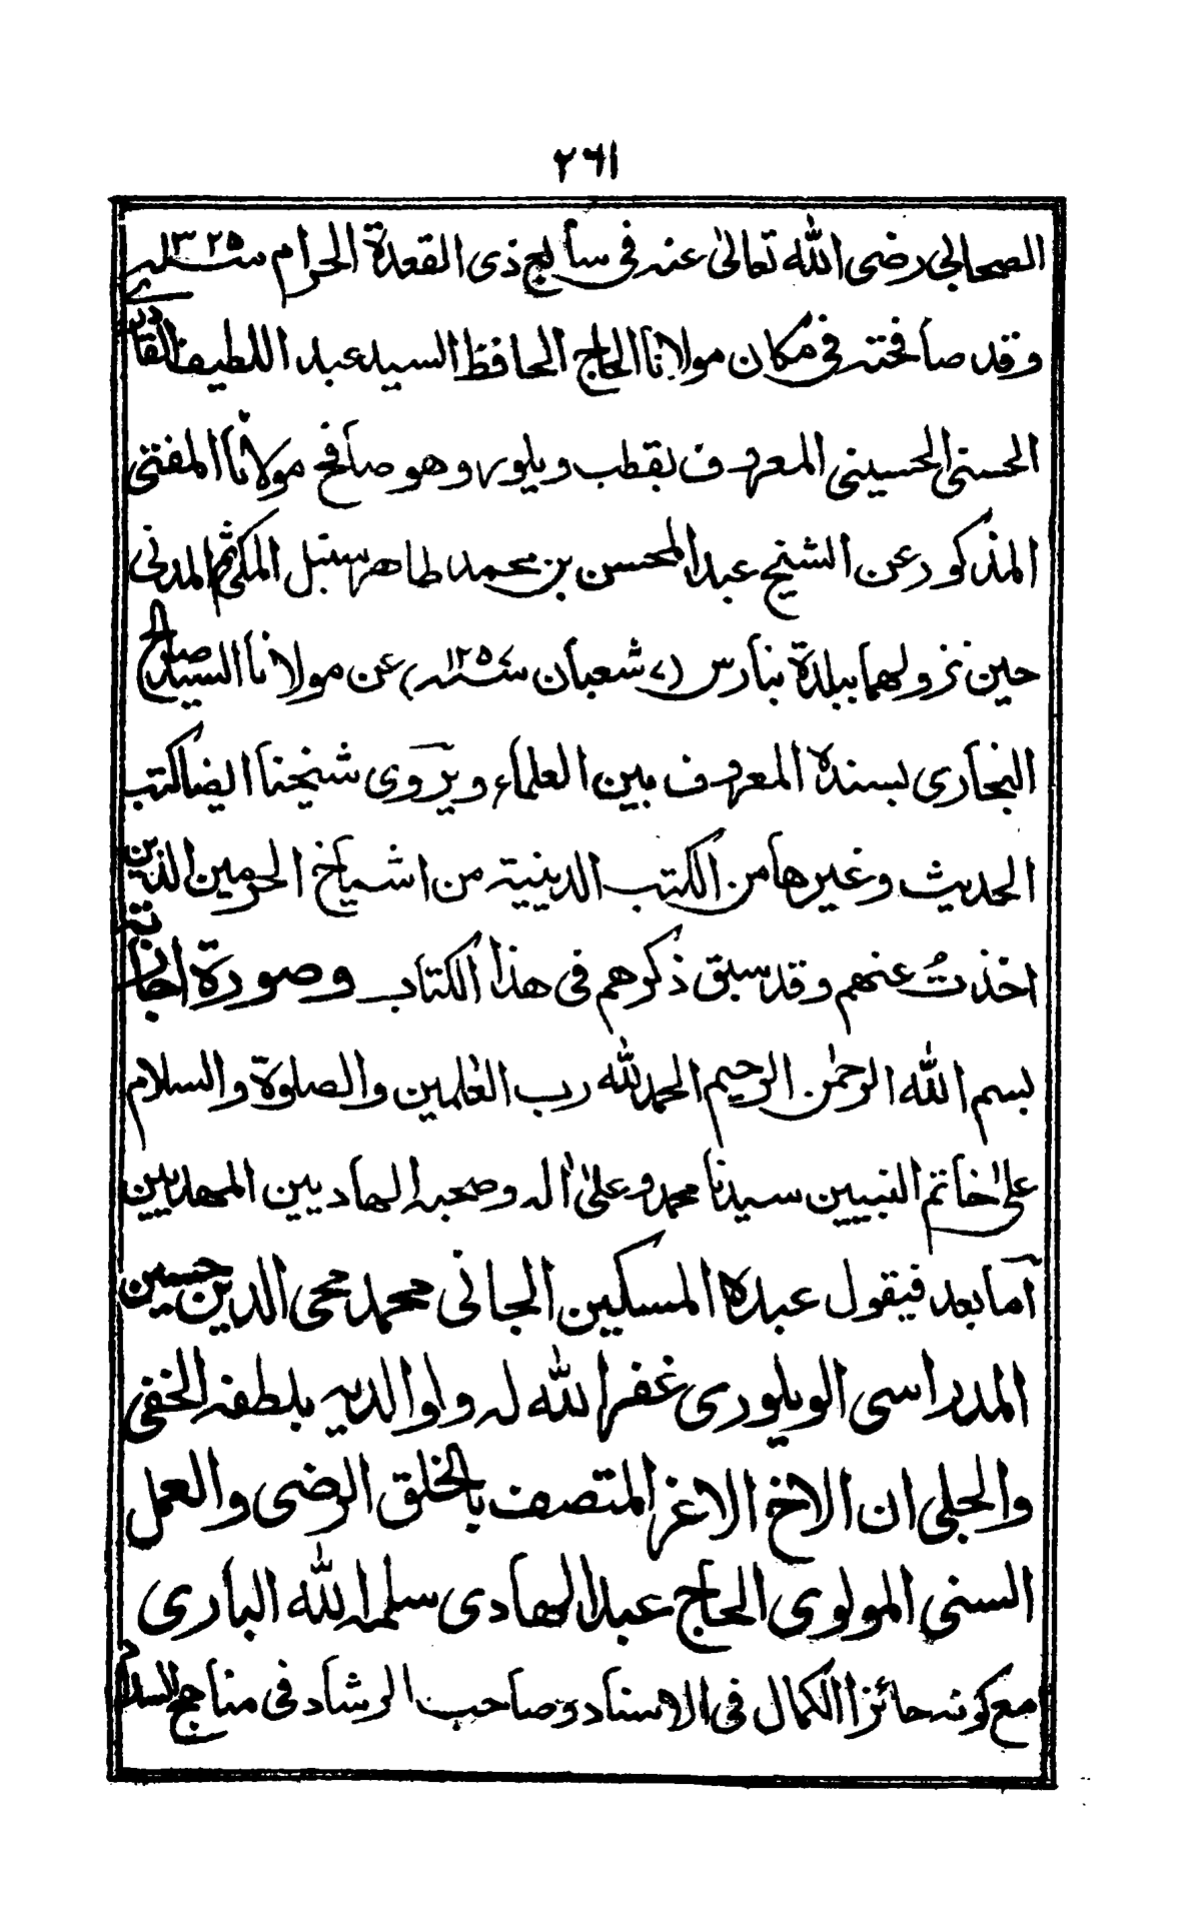 ٢٦١
الصحابي رضى الله تعالىٰ عنه فى سابع ذى القعدة الحرام سنة ١٣٢٥
وقد صافحته فى مكان مولانا الحاج الحافظ السيد عبد اللطيف القادرى
الحسنى الحسينى المعروف بقطب ويلور وهو صافح مولانا المفتى
المذكور عن الشيخ عبد المحسن بن محمد طاهر سنبل المكى ثم المدنى
حين نزولهما ببلدة بنارس (٧ شعبان سنة ١٢٥٧) عن مولانا السيد صالح
البخارى بسنده المعروف بين العلماء ويروى شيخنا ايضا كتب
الحديث وغيرها من الكتب الدينية من اشياخ الحرمين الذين
اخذتُ عنهم وقد سبق ذكرهم فى هذا الكتاب وصورة اجازته
بسم الله الرحمٰن الرحيم الحمد لله رب العٰلمين والصلوة والسلام
علىٰ خاتم النبيين سيدنا محمد وعلىٰ اٰله وصحبه الهاديين المهديين
اما بعد فيقول عبده المسكين الجانى محمد محى الدين حسين
المدراسى الويلورى غفر الله له ولوالديه بلطفه الخفى
والجلى ان الاخ الاغر المتصف بالخلق الرضى والعمل
السنى المولوى الحاج عبد الهادى سلمه الله البارى
مع كونه حائزا الكمال فى الاسناد وصاحب الرشاد فى مناهج السداد